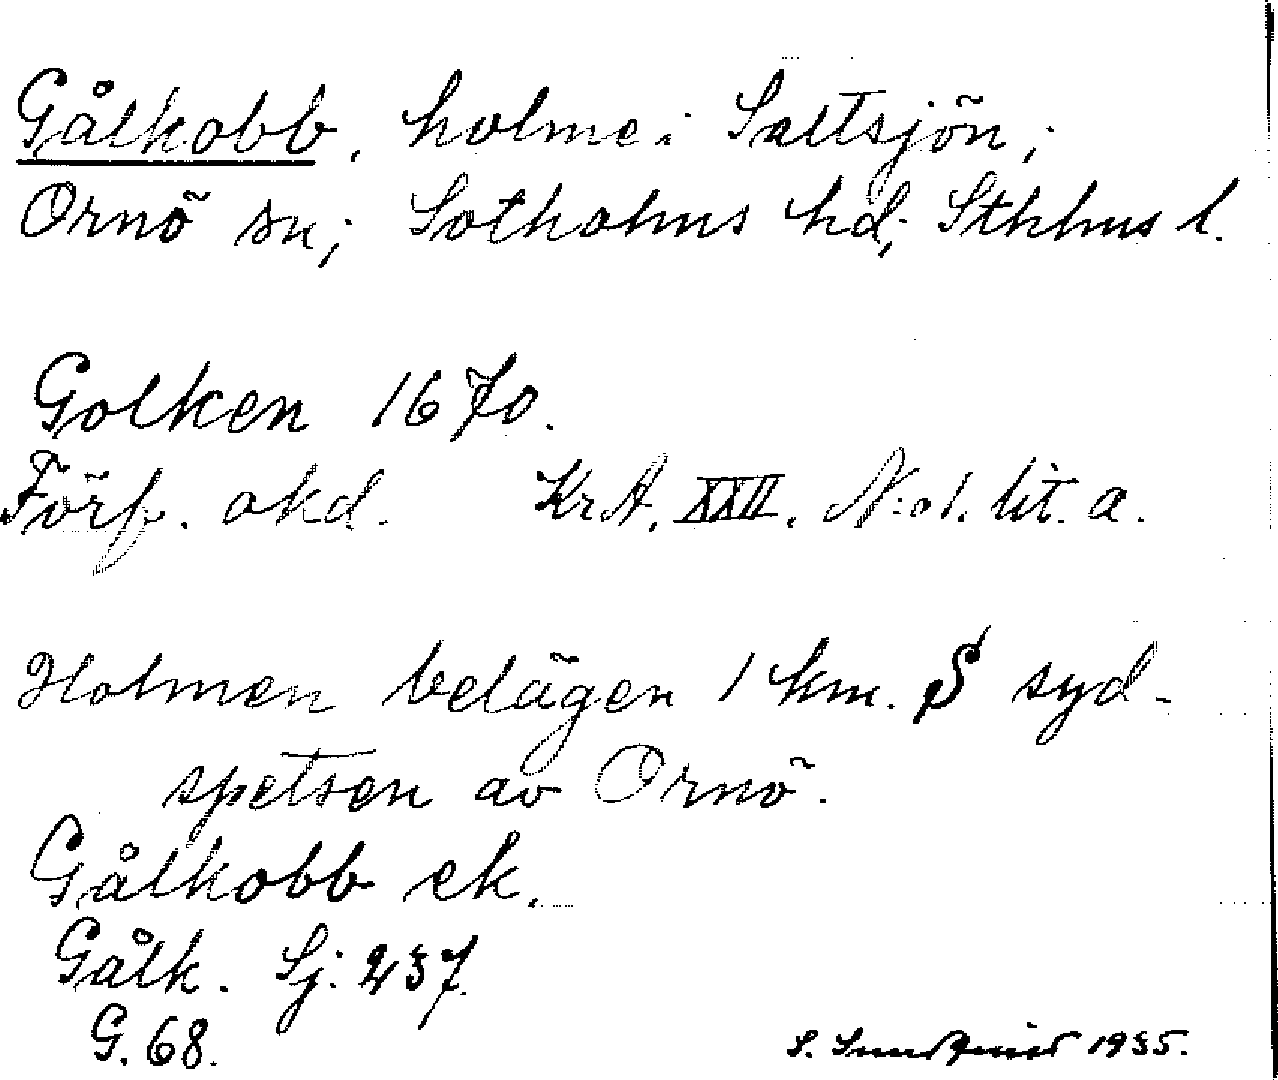 Gålkobb, holme i Saltsjön;
Ornö sn; Sotholms hd; Sthlms l.
Golken 1670.
Förf. okd. KrA. XXII. N:o 1. lit. a.
Holmen belägen 1 km. S syd-
spetsen av Ornö.
Gålkobb ek.
Gålk. Sj: 237
G. 68.
S. Sundqvist 1935.